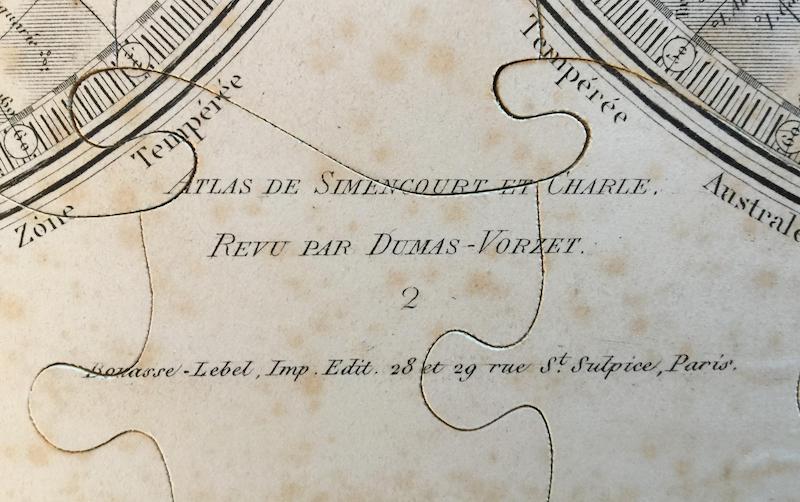 Zône Tempérée
Tempérée Australe
ATLAS DE SIMENCOURT ET CHARLE.
REVU PAR DUMAS-VORZET.
2
Bouasse-Lebel, Imp. Edit. 28 et 29 rue St. Sulpice, Paris.